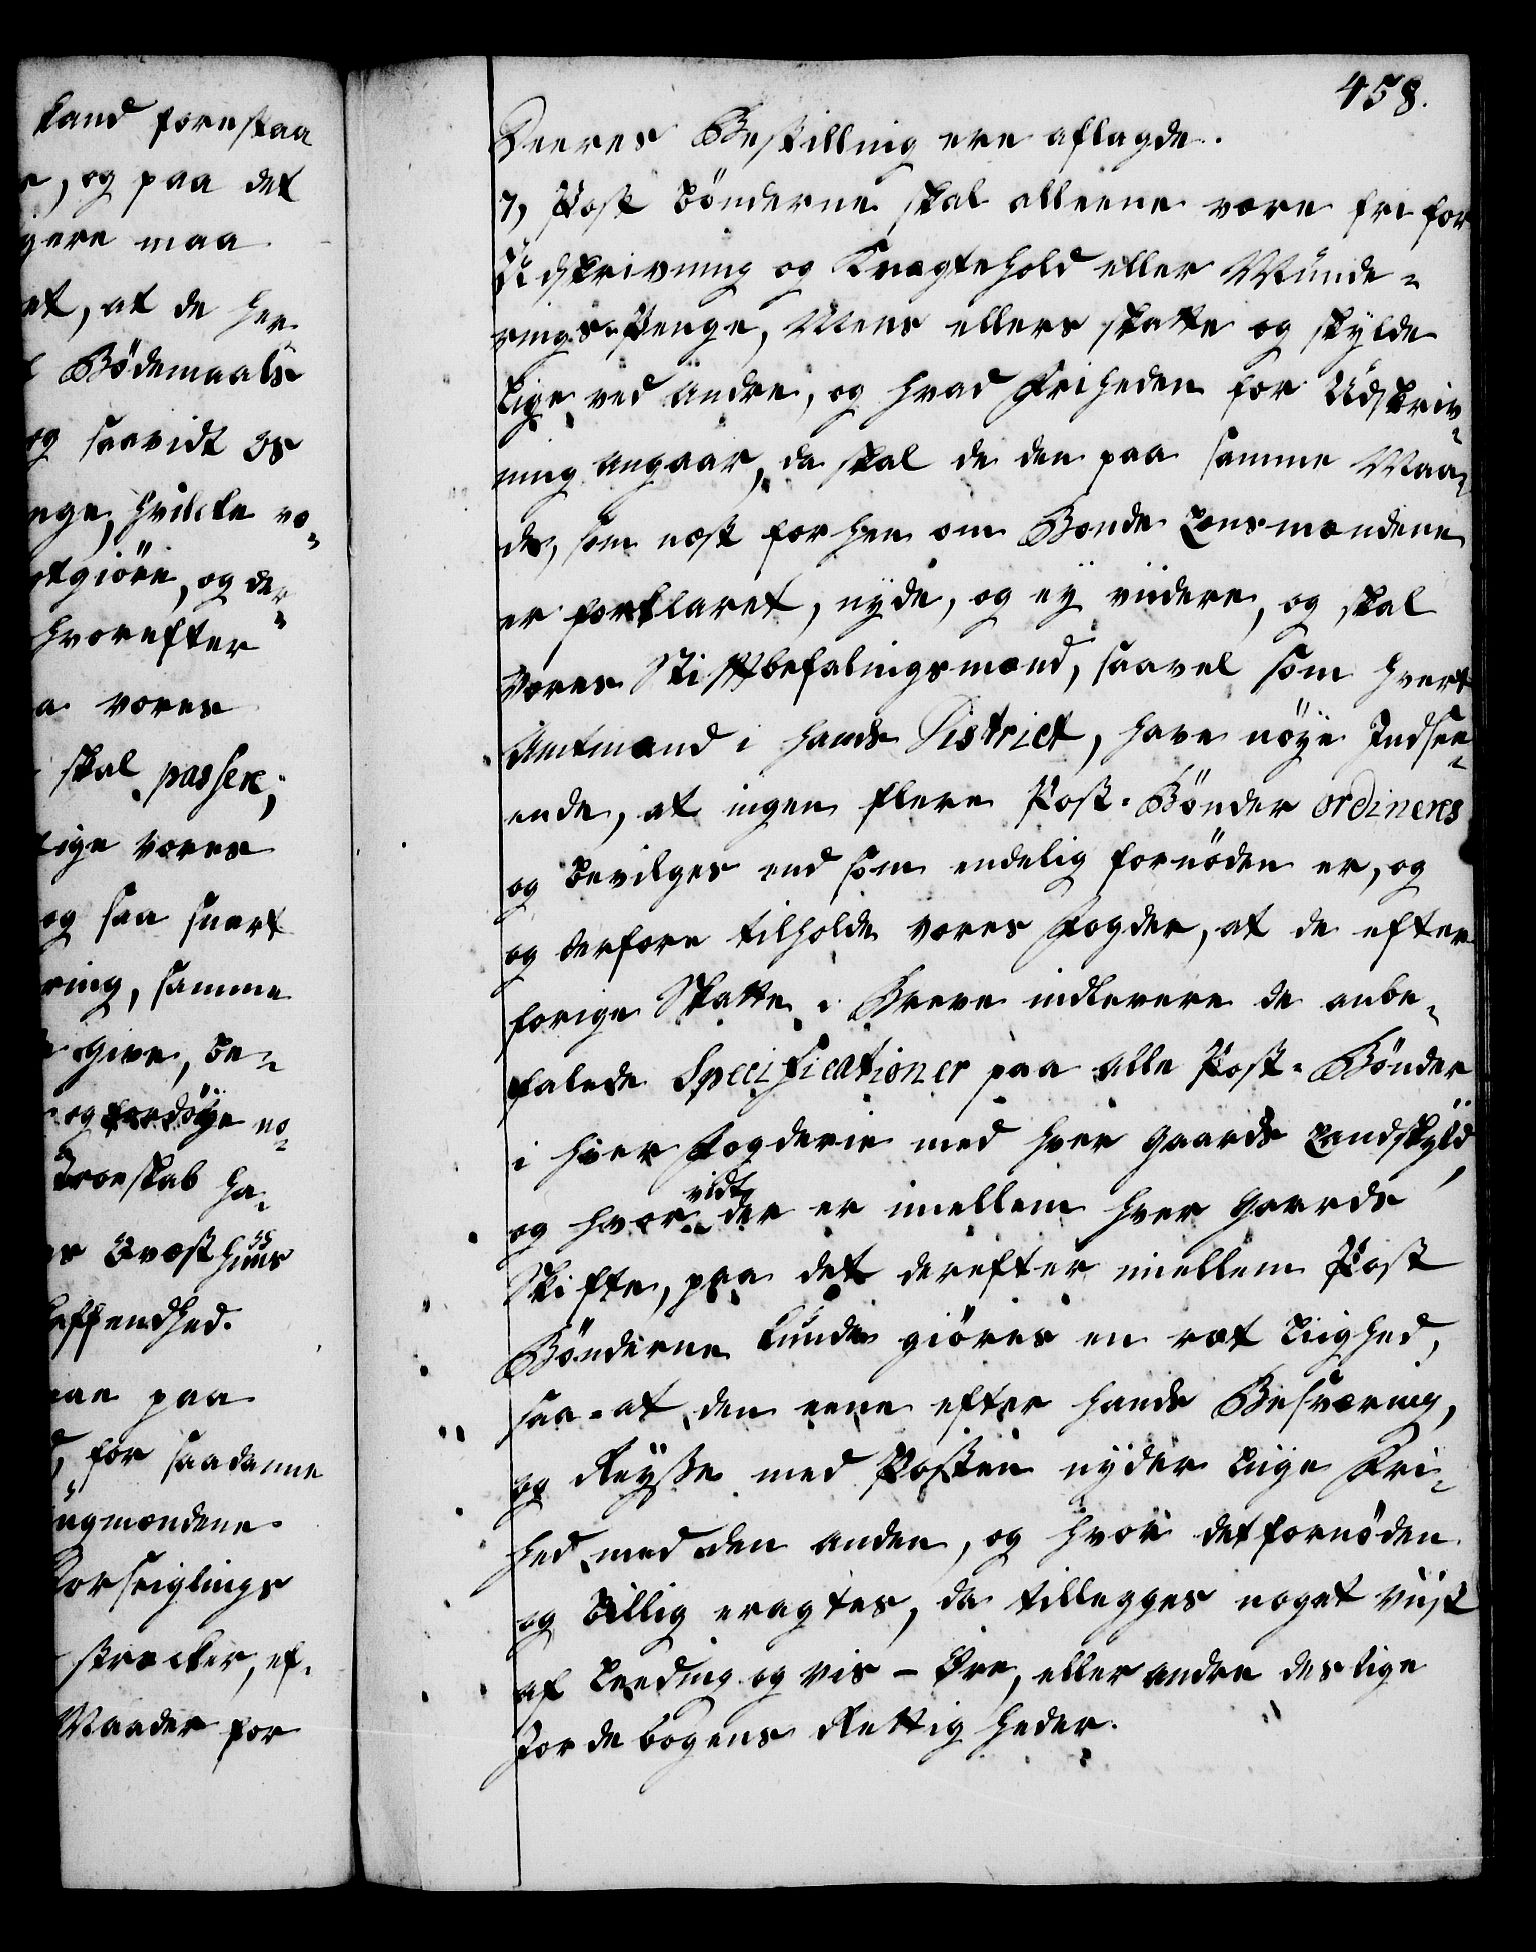 kand forestaa
r, og paa det
gere maa
et, at de her
Bødemaals
og saavidt os
nge, hvilcke væ-
rtgiöre, og der-
hvorefter
a vores
skal passere,
lige vores
og saa snart
ring, samme
give, be-
og fordöye no-
Troeskab ha-
es Qvæsthuus
haffendhed.
aae paa
for saadanne
ugmændene
Forseiglings
strecker, ef-
Maader for
458.
Deeres Bestilling ere aflagde.
7, Post bönderne skal alleene være fri for
Udskrivning og Knægtehold eller Munde-
rings-Penge, Mens ellers skatte og skylde
Lige ved Andre, og hvad Friheden for Udskriv-
ning angaar, da skal de den paa samme Maa-
de, som næst forhen om Bonde Lensmændene
er forklaret, nyde, og ey viidere, og skal
Vores Stiftbefalingsmænd, saavel som hver
Amtmand i hands District, have nöye Indse-
ende, at ingen flere Post-Bönder ordineres
og bevilges end som endelig fornöden er, og
og derfore tilholde vores Fogder, at de efter
forige Skatte-Breve indlevere de anbe-
falede Specificationer paa alle Post-Bönder
i hver Fogderie med hver Gaards Landskyld,
og hvor vidt der er imellem hver Gaards
Skifte, paa det derefter imellem Post
Bönderne kunde giöres en ræt Liighed,
saa-at den eene efter hands Besværing,
og Reyße med Posten nyder Liige Fri-
hed med den anden, og hvor det fornöden
og billig eragtes, da tillegges noget viist
af Leeding og vis-Öre, eller andre deslige
Jordebogens Rettigheder.